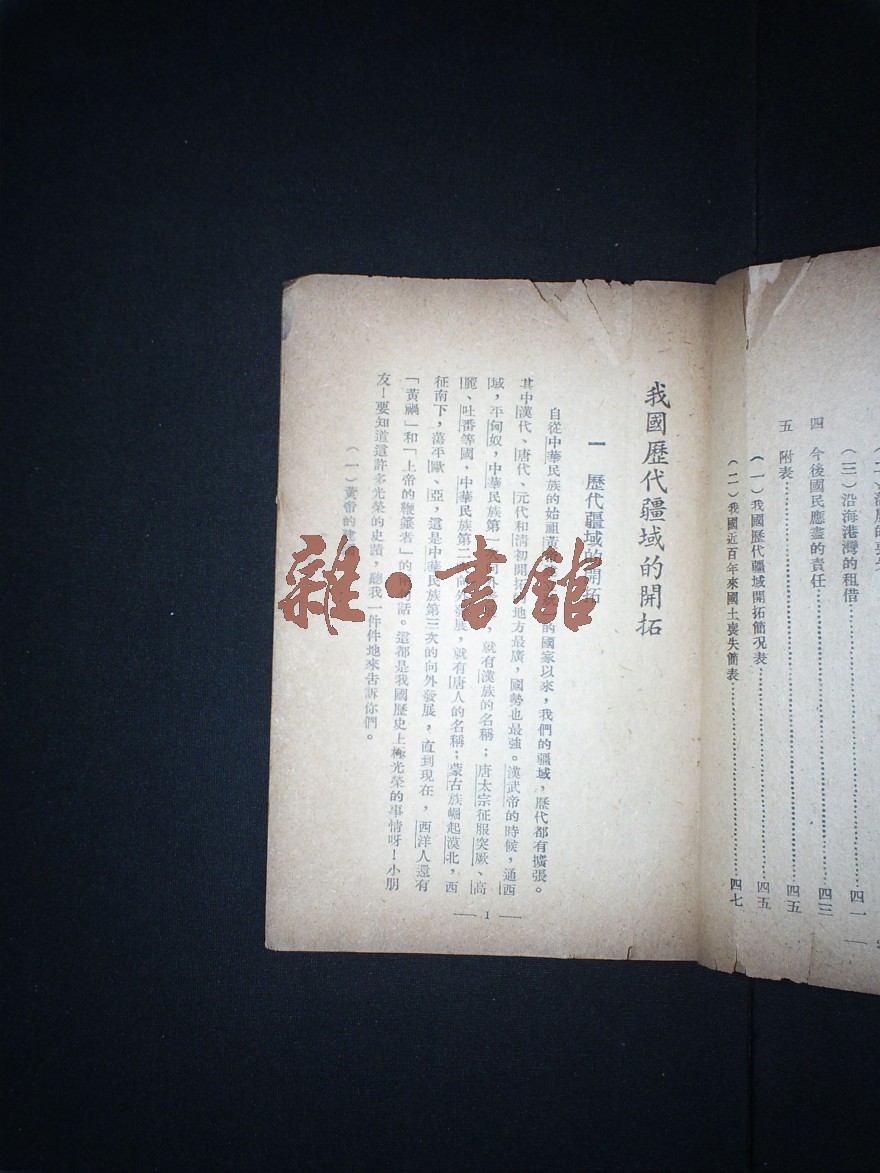 四　今後國民應盡的責任……………四三
（三）沿海港灣的租借……………四一
五　附表……………四五
（一）我國歷代疆域開拓簡況表……………四五
（二）我國近百年來國土喪失簡表……………四七
我國歷代疆域的開拓
一　歷代疆域的開拓
自從中華民族的始祖黃的國家以來，我們的疆域，歷代都有擴張。
其中漢代、唐代、元代和清初開拓地方最廣，國勢也最強。漢武帝的時候，通西
域，平匈奴，中華民族第一向外，就有漢族的名稱；唐太宗征服突厥、高
麗、吐番等國，中華民族第二向外發展，就有唐人的名稱；蒙古族崛起漠北，西
征南下，蕩平歐、亞，這是中華民族第三次的向外發展，直到現在，西洋人還有
「黃禍」和「上帝的鞭箠者」的話。這都是我國歷史上極光榮的事情呀！小朋
友！要知道這許多光榮的史蹟，聽我一件件地來告訴你們。
（一）黃帝的建
— 1 —
雜·書館